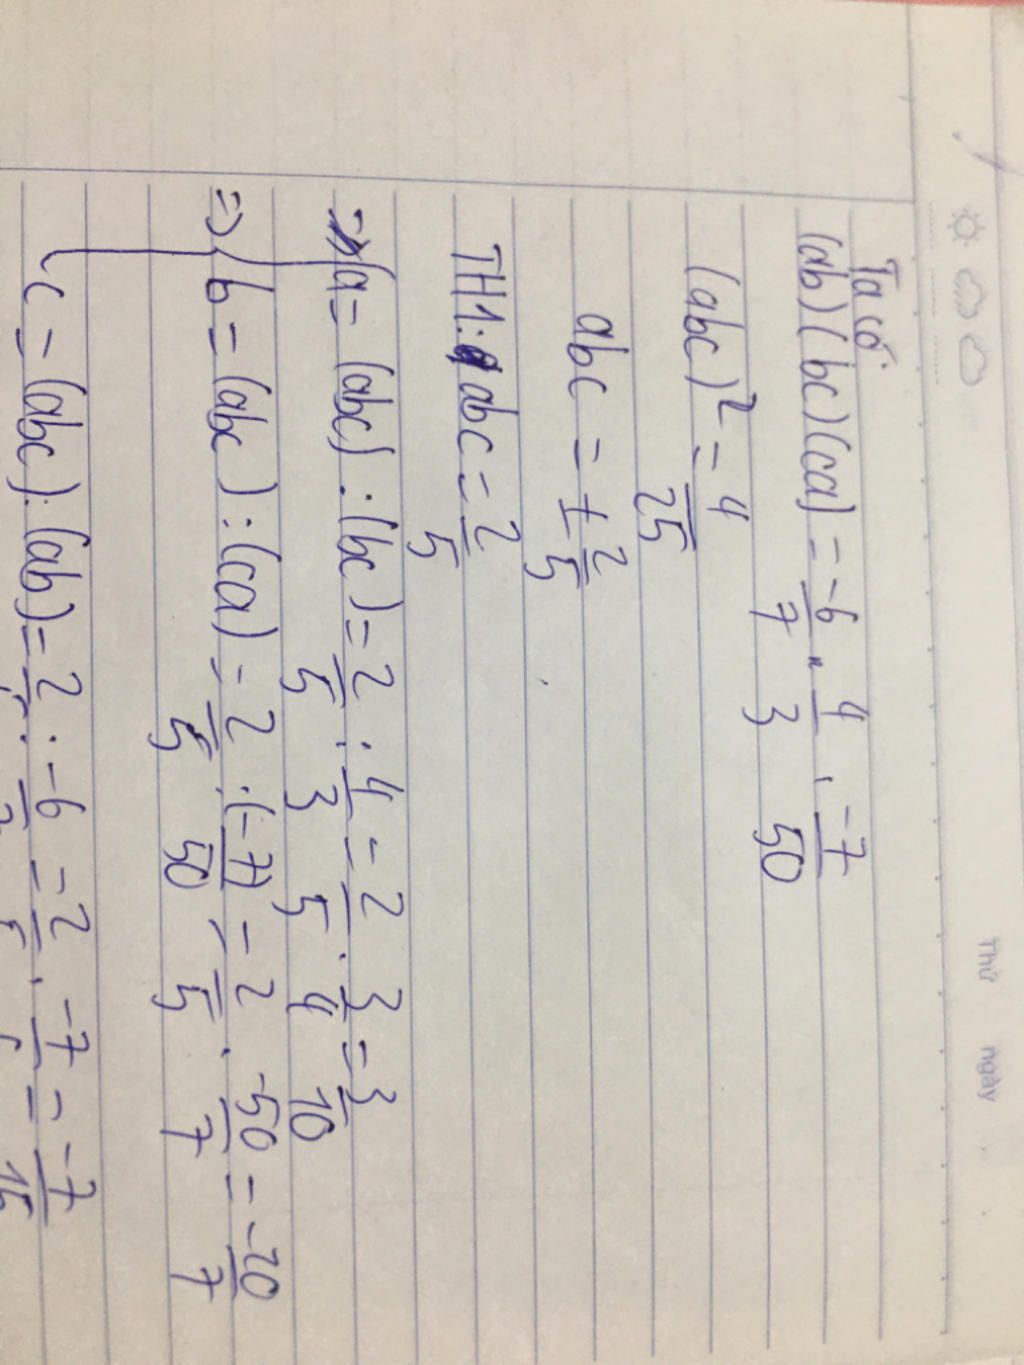 Thứ ngày
Ta có
(ab)(bc)(ca) = -6/7 . 4/3 . -7/50
(abc)² = 4/25
abc = ± 2/5
TH1: abc = 2/5
=> a = (abc) : (bc) = 2/5 : 4/3 = 2/5 . 3/4 = 3/10
=> b = (abc) : (ca) = 2/5 : (-7/50) = 2/5 . -50/7 = -20/7
c = (abc) : (ab) = 2/5 : -6/7 = 2/5 . -7/6 = -7/15